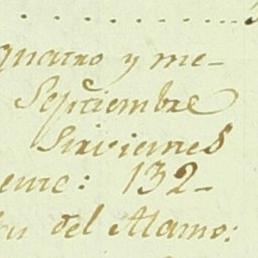 quatro y me-
Septiembre
Sirvientes
ente: 132-
del Alamo: